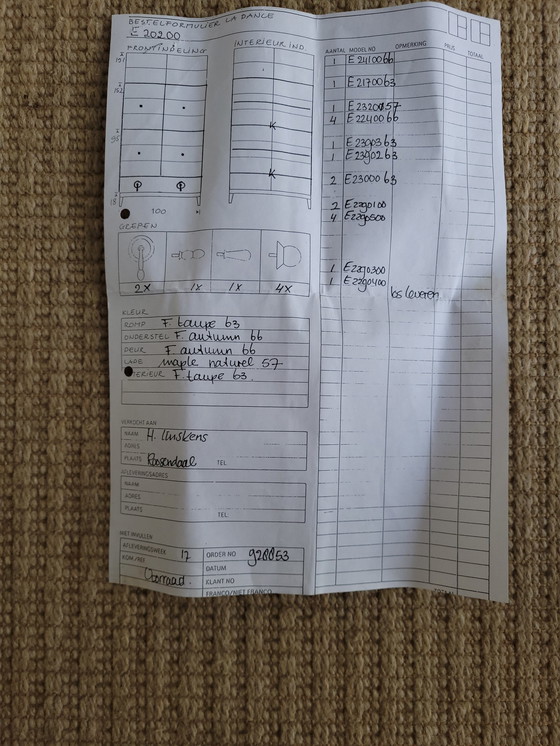 BESTELFORMULIER LA DANCE
E 20200
FRONTINDELING
INTERIEUR IND.
191
152
95
18
K
K
100
GREPEN
2x 1x 1x 4x
KLEUR
ROMP F taupe 63
ONDERSTEL F. autumn 66
DEUR F autumn 66
LADE maple naturel 57
TERIEUR F taupe 63
VERKOCHT AAN
NAAM H.
ADRES
PLAATS Roosendaal TEL
AFLEVERINGSADRES
NAAM
ADRES
PLAATS TEL.
NIET INVULLEN
AFLEVERINGSWEEK 17
ORDER NO
DATUM
KLANT NO
FRANCO/NIET FRANCO
AANTAL MODEL NO OPMERKING PRIJS TOTAAL
1 E2410066
1 E2170063
1
4 E2240066
1 E2390363
1 E2390263
2 E2300063
2 E2290100
4 E2290500
1 E2290300
1 E2290400
los leveren
TOTAAL